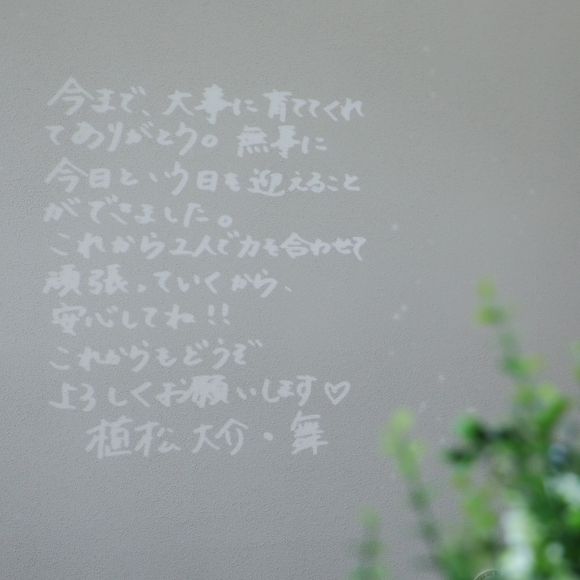 今まで、大事に育ててくれ
てありがとう。無事に
今日という日を迎えること
ができました。
これから2人で力を合わせて
頑張っていくから、
安心してね!!
これからもどうぞ
よろしくお願いします♡
植松 大介・舞